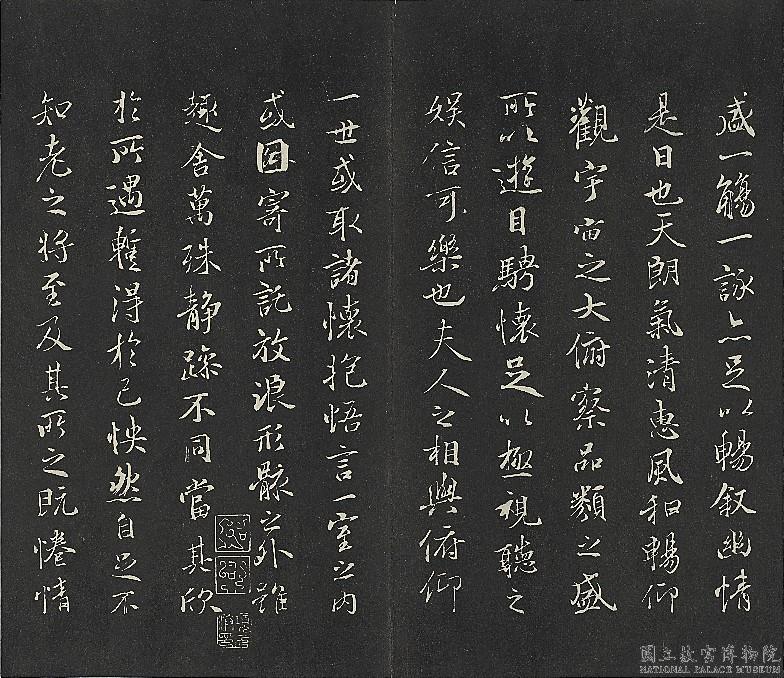 盛一觴一詠亦足以暢敘幽情
是日也天朗氣清惠風和暢仰
觀宇宙之大俯察品類之盛
所以遊目騁懷足以極視聽之
娛信可樂也夫人之相與俯仰
一世或取諸懷抱悟言一室之內
或因寄所託放浪形骸之外雖
趣舍萬殊靜躁不同當其欣
於所遇暫得於己怏然自足不
知老之將至及其所之既惓情
國立故宮博物院
NATIONAL PALACE MUSEUM